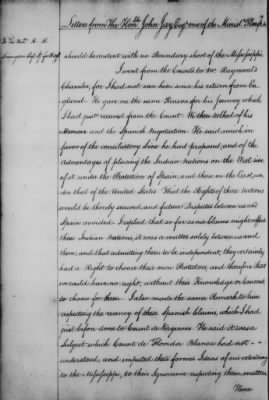 Letters from The Honble. John Jay Esqr. one of the Minist. Plenip.
should be content with no Boundary short of the Mississippi
I went from the Counts to Mr. Rayneval's
Chamber, for I had not seen him since his return from En-
gland. He gave me the same Reason for his journey which
I had just received from the Count. We then talked of his
Memoir and the Spanish Negotiation. He said much in
favor of the conciliatory Line he had proposed, and of the
Advantages of placing the Indian Nations on the West side
of it under the Protection of Spain, and those on the East, un-
der that of the United States. That the Rights of those Nations
would be thereby secured, and future Disputes between us and
Spain avoided. I replied that so far as our claims might affect
those Indian Nations, it was a matter solely between us and
them; and that admitting them to be independent, they certainly
had a Right to choose their own Protectors; and therefore that
we could have no right, without their Knowledge or Consent
to choose for them. I also made the same Remark to him
respecting the recency of these Spanish Claims, which I had
just before done to Count de Vergennes. He said it was a
Subject which Count de Florida Blanca had not
understood, and imputed their former Ideas of our extending
to the Mississippi, to their Ignorance respecting those matters
Hence